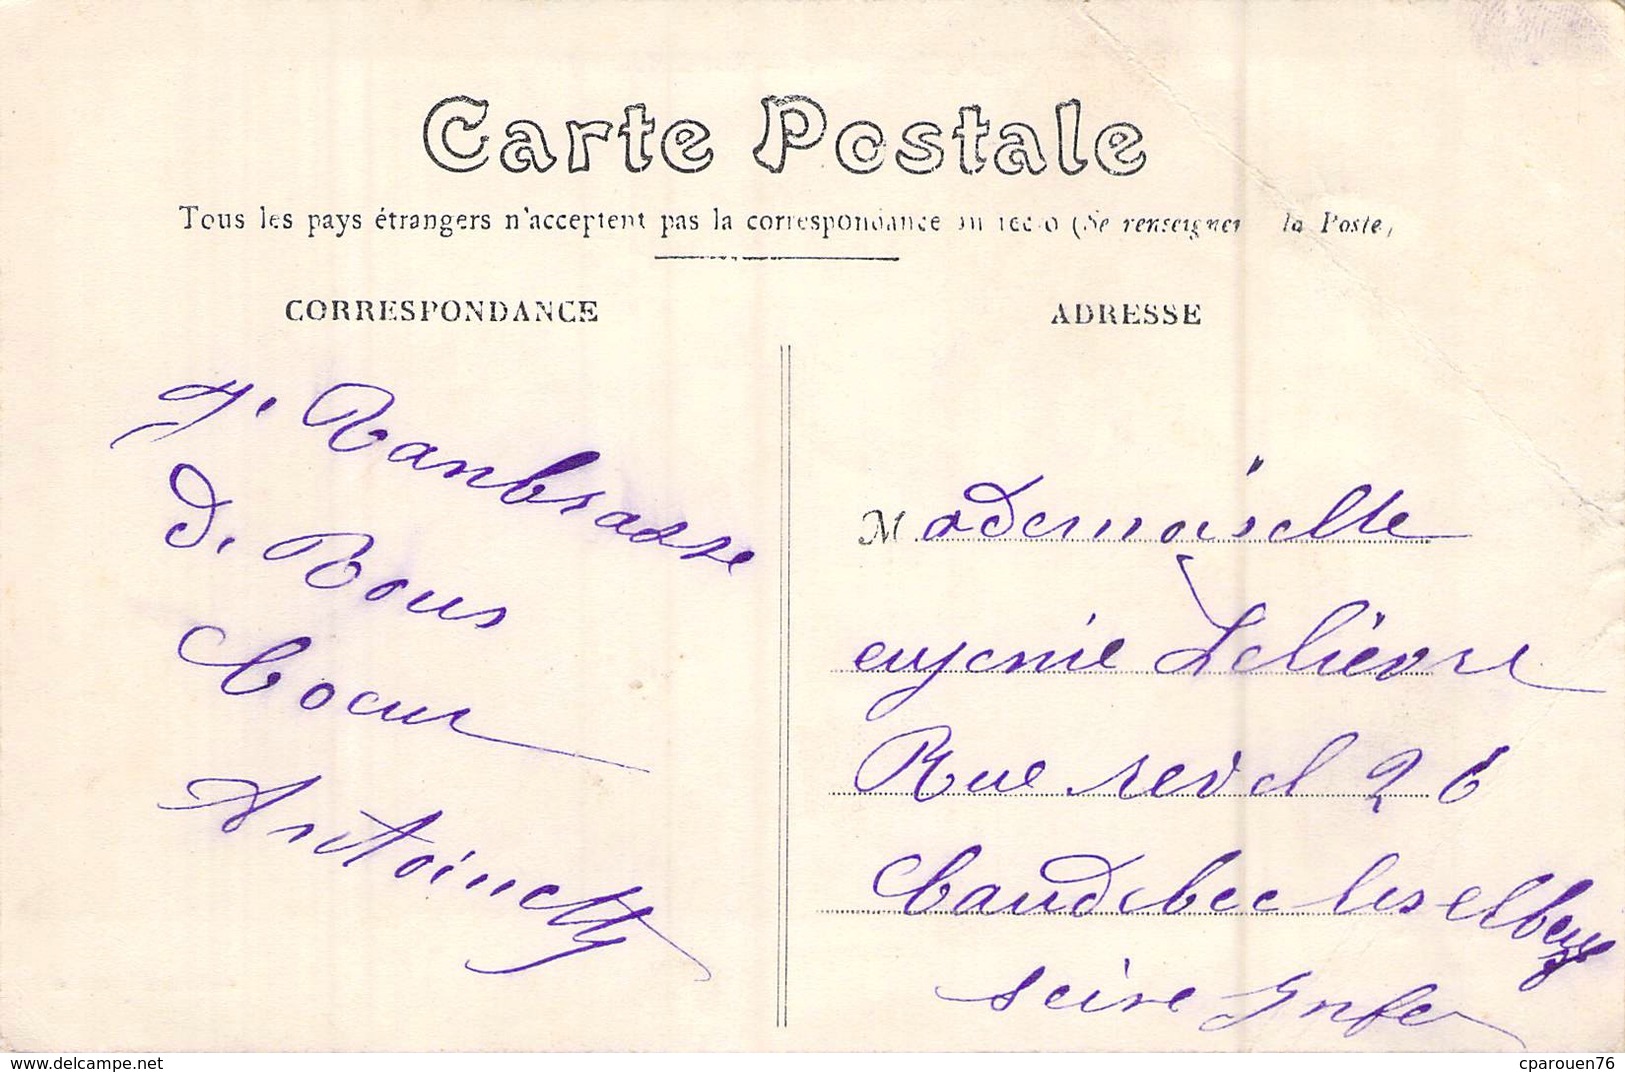 Carte Postale
Tous les pays étrangers n'acceptent pas la correspondance au recto (Se renseigner à la Poste)
CORRESPONDANCE
ADRESSE
J' Ranbrasse
De Bous
Coeur
Antoinette
Mademoiselle
eugenie Lelièvre
Rue revel 26
Caudebec les elbeuf
seine Infer
www.delcampe.net
cparouen76